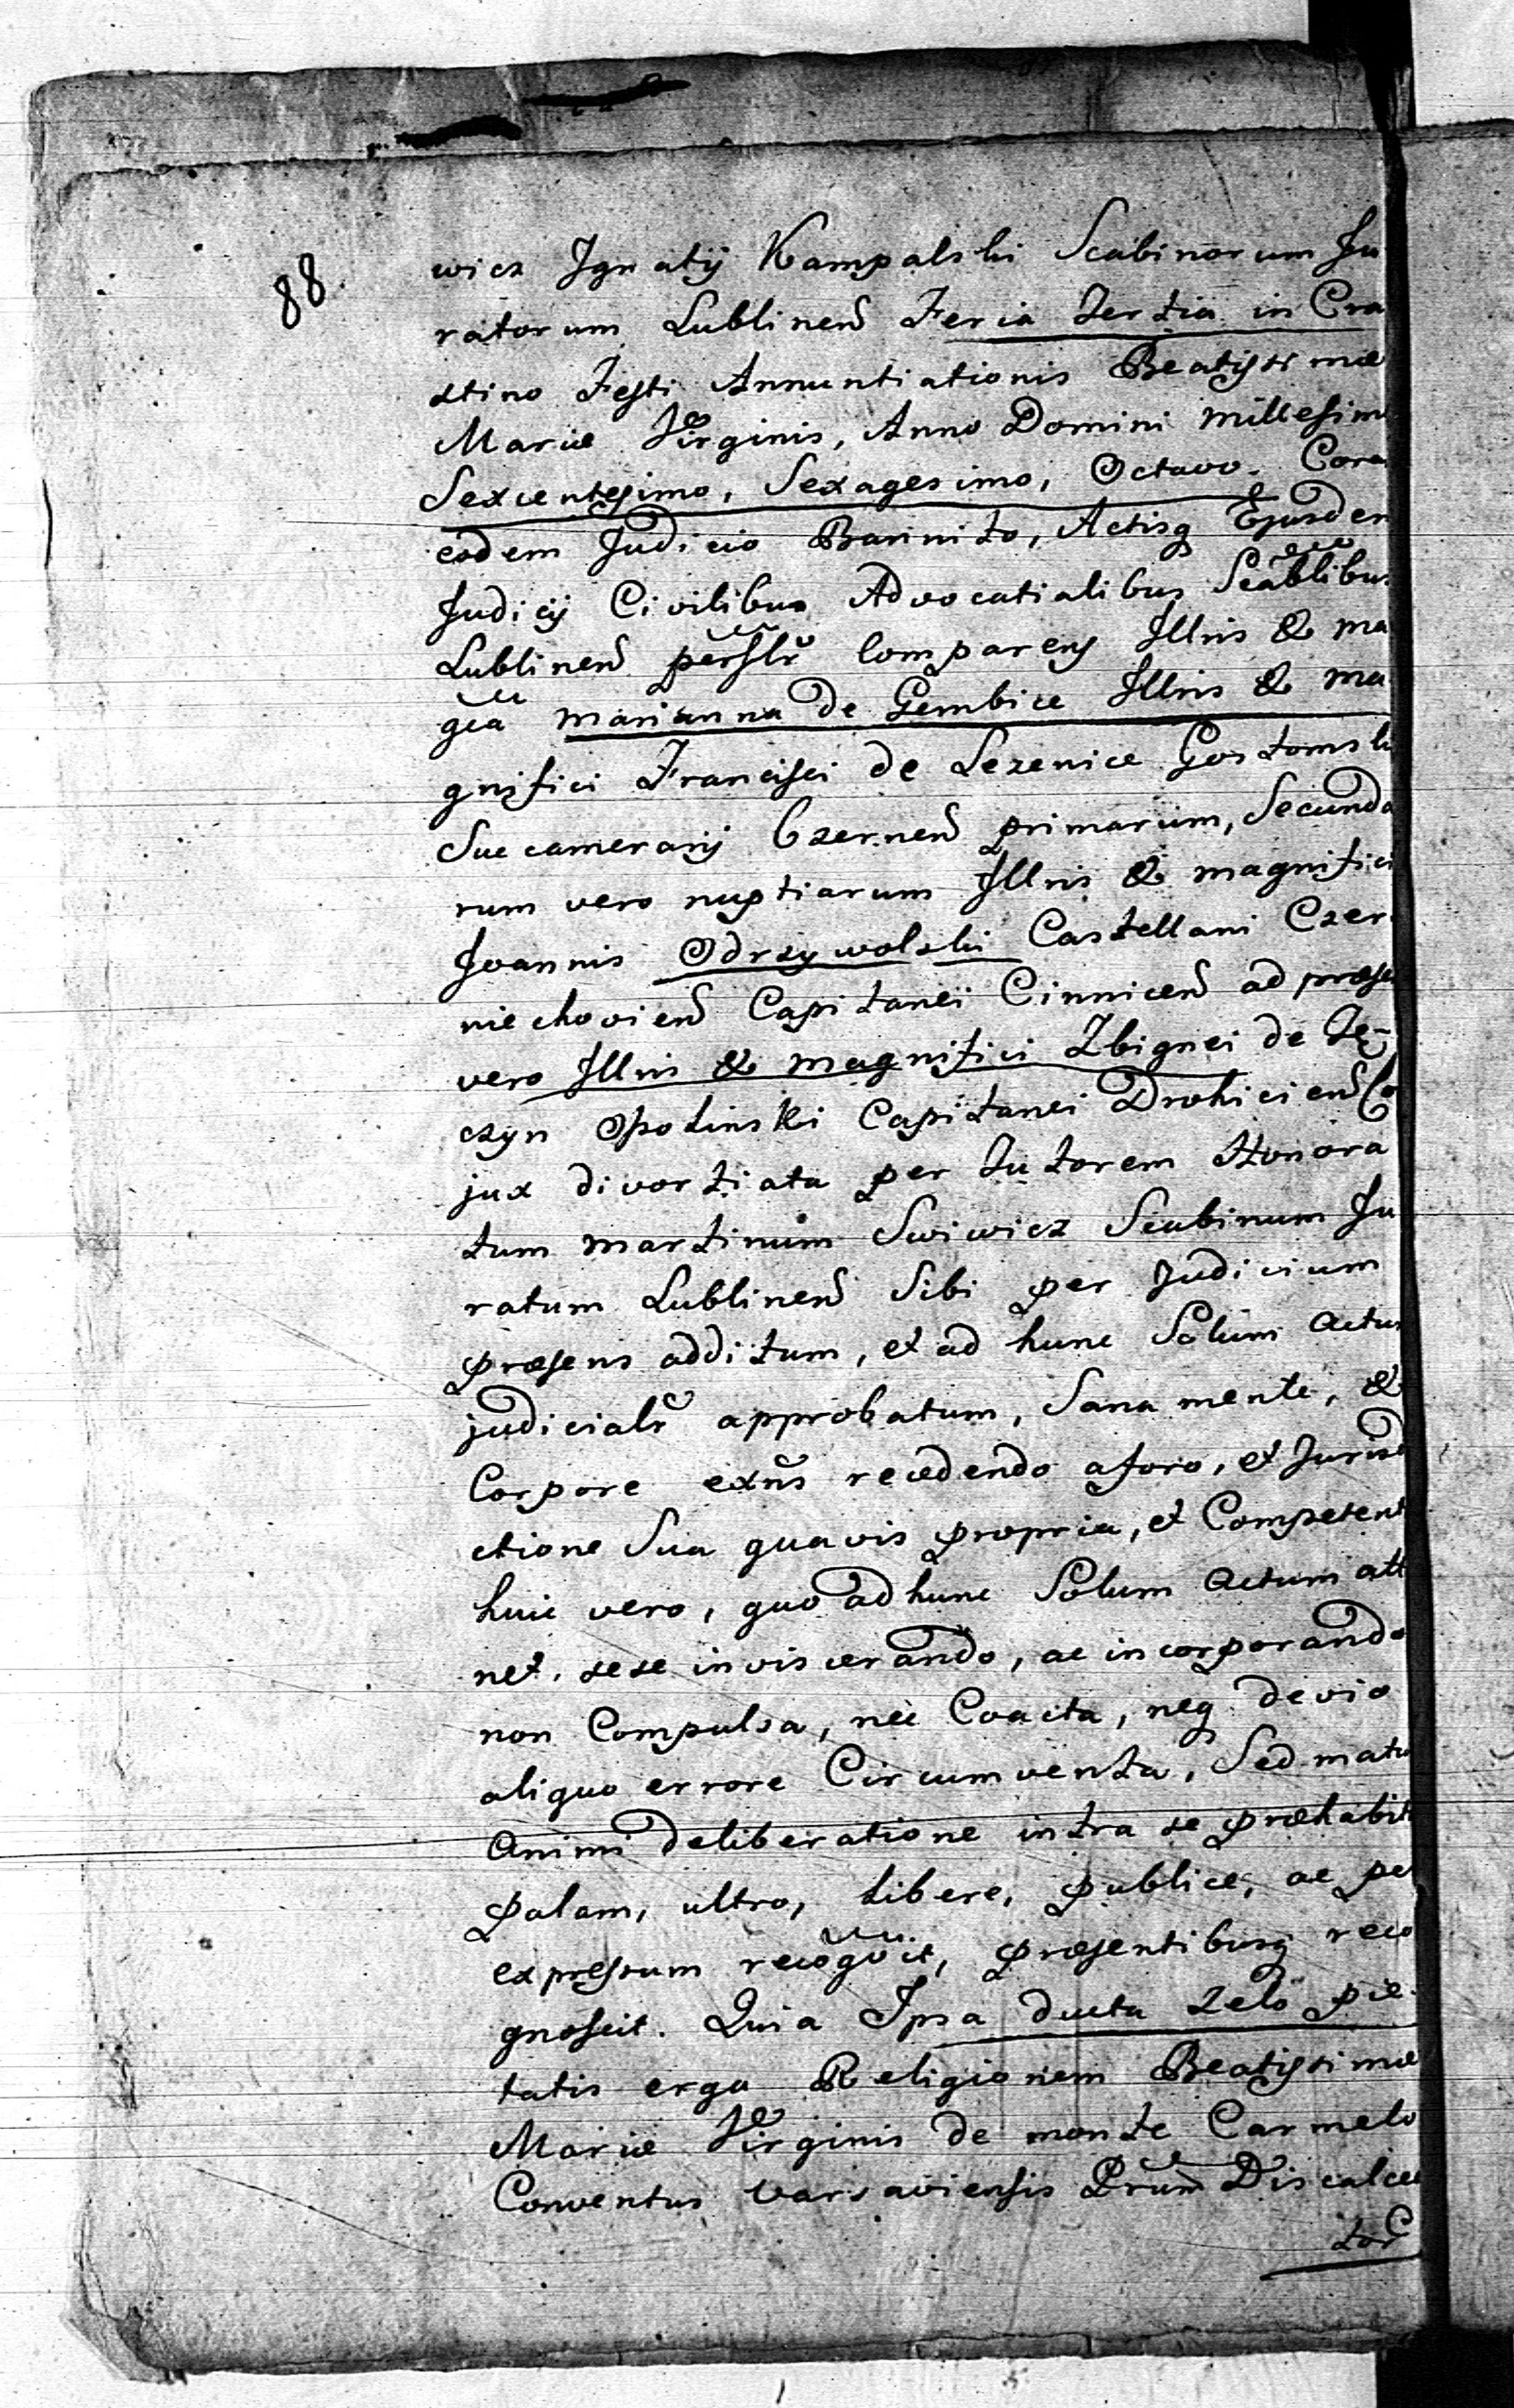 88.
wicz Ignatij Kampalski Scabinorum Ju
ratorum Lublinen Feria tertia in Cra
stino Festi Annuntiationis Beatissimæ
Mariæ Virginis, Anno Domini millesimo
Sexcentesimo, Sexagesimo, Octavo. Cora
eodem Judicio Bannito, Actisq Ejusdem
Judicij Civilibus Advocatialibus Scablibus
Lublinen perslr comparens Illris & ma
gca Marianna de Gembice Illris & ma
gnifici Francisci de Lezenice Gostomski
Succamerarij Czernen primarum, Secunda
rum vero nuptiarum Illris & magnifici
Joannis Odrzywolski Castellani Czer
niechovien Capitanei Cinnicen ad præse
vero Illris & magnifici Zbignei de Te-
czyn Ossolinski Capitanei Drohicien Co
jux divortiata per tutorem Honora
tum Martinum Swiwicz Scabinum Ju
ratum Lublinen Sibi per Judicium
præsens additum, et ad hunc Solum actum
judicialr approbatum, Sana mente, &
Corpore exns recedendo a foro, et Jurisd
ctione Sua quavis propria, et Competent
huic vero, quo ad hunc Solum actum atti
net, sese inviscerando, ac incorporando
non Compulsa, nec Coacta, neq devio
aliquo errore Circumventa, Sed matu
animi deliberatione intra se præhabit
palam, ultro, libere, publice, ac per
expressum recogvit, præsentibusq reco
gnoscit. Quia Ipsa ducta zelo pie
tatis erga Religionem Beatissimæ
Mariæ Virginis de monte Carmelo
Conventus Varsaviensis Prum Discalcea
tor